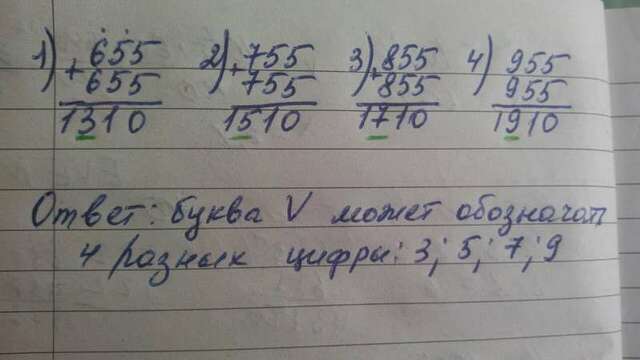 1) 655 2) 755 3) 855 4) 955
+ 655 + 755 + 855 955
1310 1510 1710 1910
Ответ: буква V может обозначать
4 разных цифры: 3; 5; 7; 9